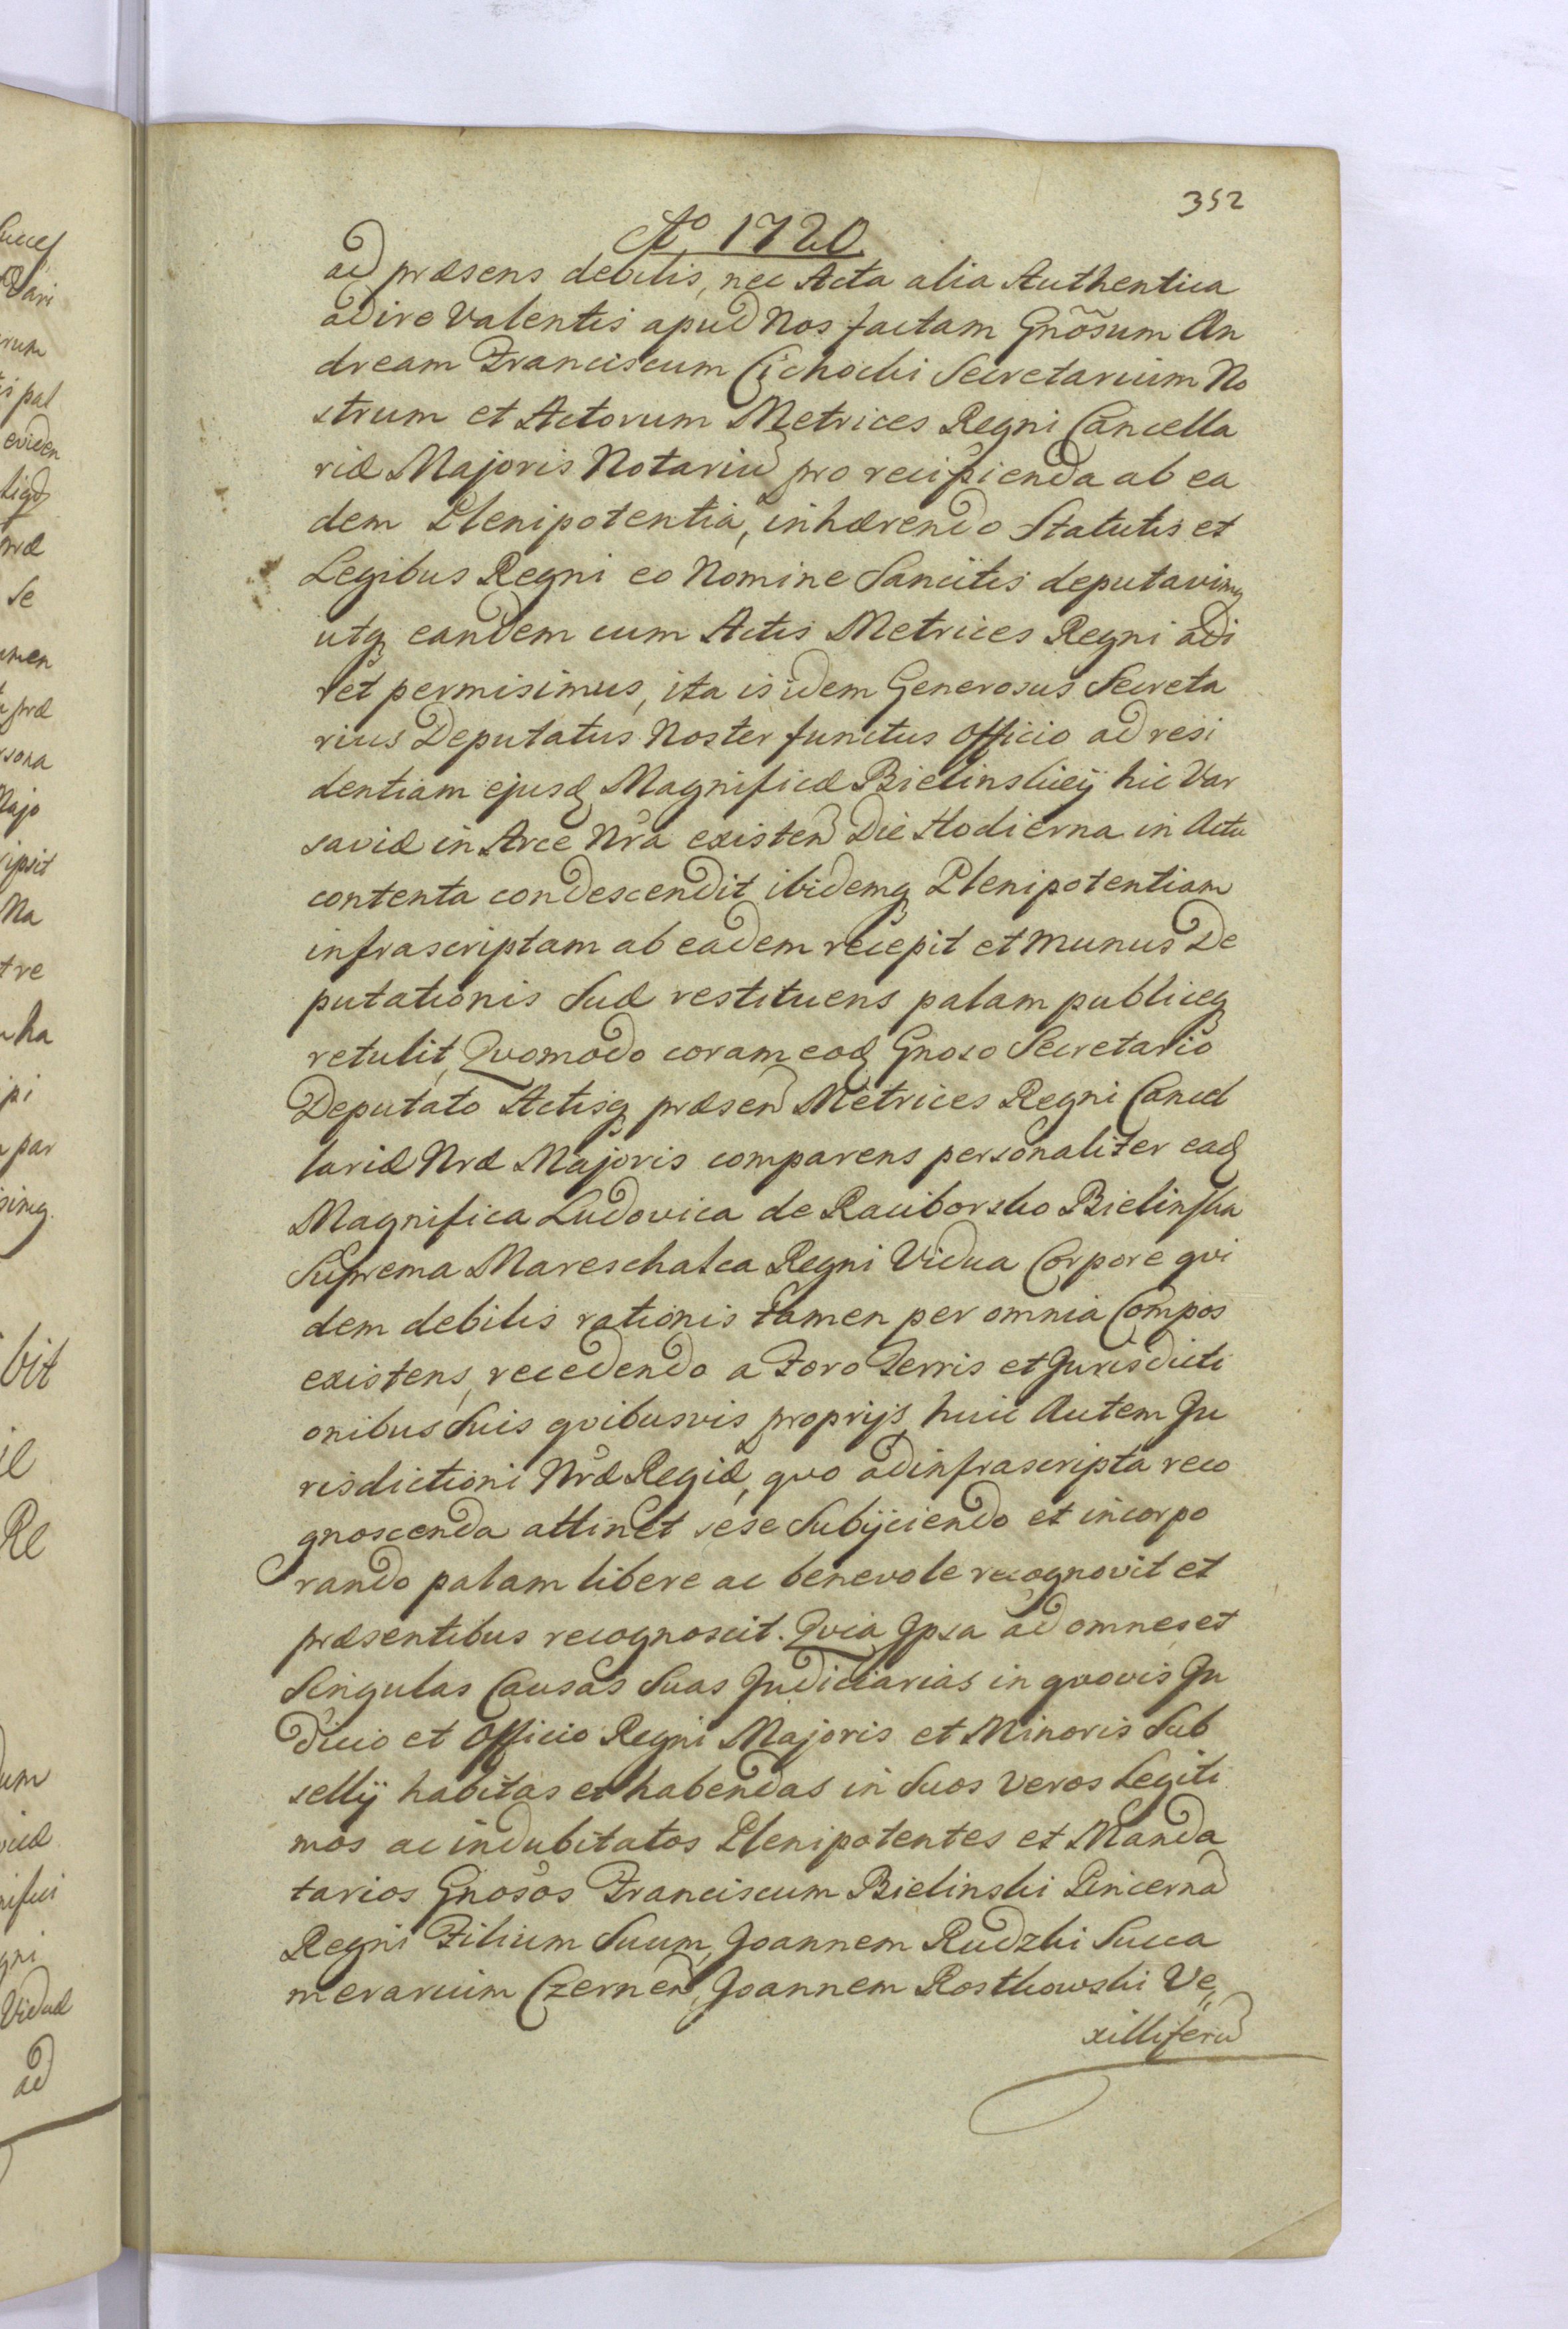 352
Aº 1720
ad præsens debilis, nec Acta alia Authentica
adire Valentis apud Nos factam Gnõsum An
dream Franciscum Cichocki Secretarium No
strum et Actorum Metrices Regni Cancella
riæ Majoris Notariũ pro recipienda ab ea
dem Plenipotentia, inhærendo Statutis et
Legibus Regni eo Nomine Sancitis deputavimꝗ
utꝗ eandem cum Actis Metrices Regni adi
ret permisimus, ita is idem Generosus Secreta
rius Deputatus Noster functus Officio ad resi
dentiam ejusd Magnificæ Bielinskiey hic Var
saviæ in Arce Nrã existeñ Die Hodierna in Actu
contenta condescendit ibidemꝗ Plenipotentiam
infrascriptam ab eadem recepit et munus De
putationis Suæ restituens palam publiceꝗ
retulit, Qvomodo coram eod Gnoso Secretario
Deputato Actisꝗ præseñ Metrices Regni Cancel
lariæ Nræ Majoris comparens personaliter ead
Magnifica Ludovica de Raciborsko Bielinska
Suprema Mareschalca Regni Vidua Corpore qvi
dem debilis rationis tamen per omnia Compos
existens, recedendo a Foro Terris et Jurisdicti
onibus Suis qvibusvis proprijs, huic Autem Ju
risdictioni Nræ Regiæ, qvo ad infrascripta reco
gnoscenda attinet sese Subijciendo et incorpo
rando palam libere ac benevole recognovit et
præsentibus recognoscit. Qvia Ipsa ad omnes et
Singulas Causas Suas Judiciarias in qvovis Ju
dicio et Officio Regni Majoris et Minoris Sub
sellij habitas et habendas in Suos Veros Legiti
mos ac indubitatos Plenipotentes et Manda
tarios Gnosos Franciscum Bielinski Pincernã
Regni Filium Suum, Joannem Rudzki Succa
merarium Czerneñ, Joannem Rostkowski Ve,,
xilliferũ